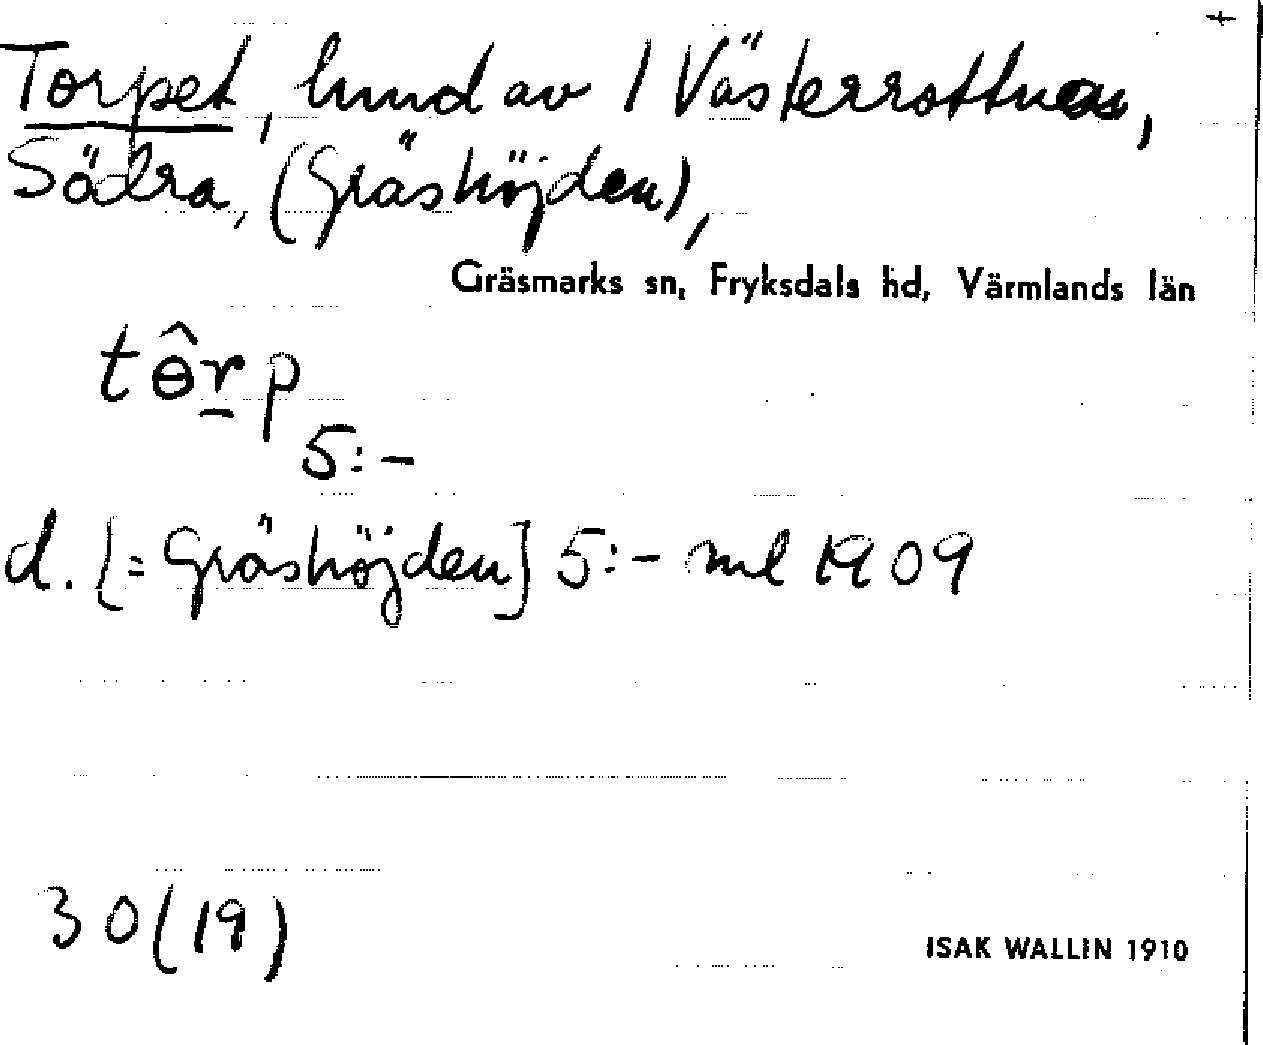 +
Torpet, hmd av 1 Västerrottnen,
Södra, (Gräshöjden),
Gräsmarks sn, Fryksdals hd, Värmlands län
tɵ̂r̲p
5:-
d. [= Gräshöjden] 5:- ml 1909
30(19)
ISAK WALLIN 1910